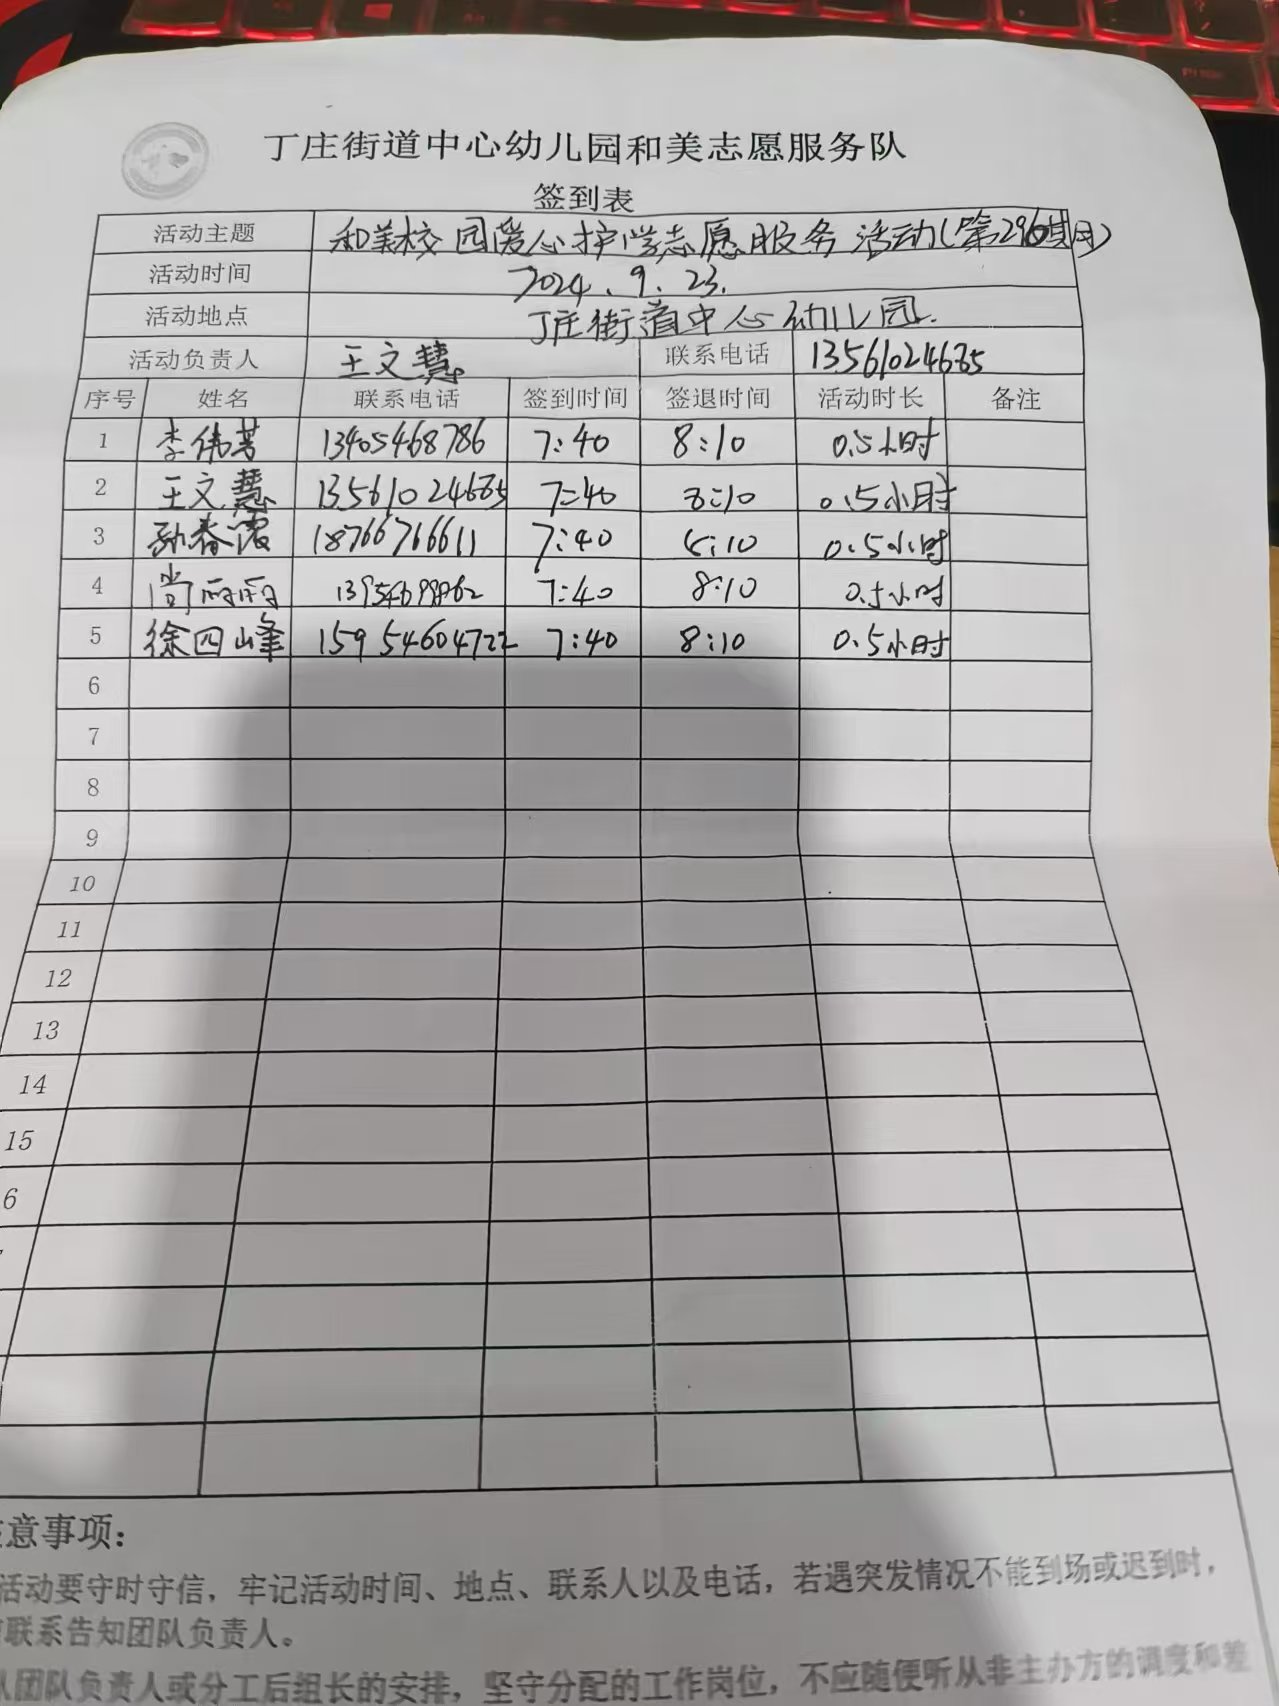 丁庄街道中心幼儿园和美志愿服务队
签到表
活动主题 和美校园爱心护学志愿服务活动(第296期)
活动时间 2024.9.23.
活动地点 丁庄街道中心幼儿园.
活动负责人 王文慧 联系电话 13561024685
序号 姓名 联系电话 签到时间 签退时间 活动时长 备注
1 李伟芳 13405468786 7:40 8:10 0.5小时
2 王文慧 13561024685 7:40 8:10 0.5小时
3 孙春霞 18766766611 7:40 8:10 0.5小时
4 尚丽丽 7:40 8:10 0.5小时
5 徐四峰 15954604722 7:40 8:10 0.5小时
6
7
8
9
10
11
12
13
14
15
6
意事项：
活动要守时守信，牢记活动时间、地点、联系人以及电话，若遇突发情况不能到场或迟到时，
联系告知团队负责人。
团队负责人或分工后组长的安排，坚守分配的工作岗位，不应随便听从非主办方的调度和差